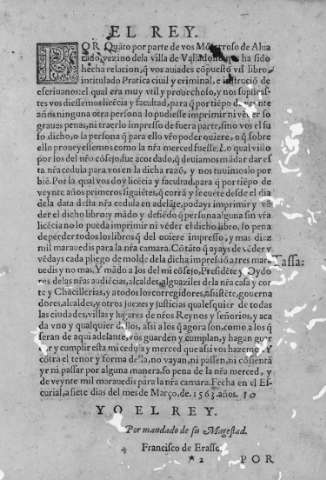 EL REY.
POR Quãto por parte de vos Mõterroso de Alua
rado, vezino dela villa de Valladolid nos ha sido
hecha relacion, q̃ vos auiades cõpuesto vn libro
intitulado Pratica ciuil y criminal, e instructiõ de
escriuanos: el qual era muy vtil y prouechoso, y nos suplicas
tes vos diessemos licẽcia y facultad, para q̃ por tiẽpo de
años ninguna otra persona lo pudiesse imprimir ni vẽder so
graues penas, ni traerlo impresso de fuera parte, sino vos el su
so dicho, o la persona q̃ para ello vr̃o poder ouiere, o q̃ sobre
ello proueyessemos como la nr̃a merced fuesse. Lo qual visto
por los del nr̃o cõsejo, fue acordado, q̃ deuiamos mãdar dar es
ta nr̃a cedula para vos en la dicha razõ, y nos tuuimoslo por
biẽ. Por la qual vos doy licẽcia y facultad, para q̃ por tiẽpo de
veynte años primeros siguiẽtes, q̃ corrã y se cuẽte desde el dia
dela data desta nr̃a cedula en adelãte, podays imprimir y vẽ-
der el dicho libro: y mãdo y defiẽdo q̃ persona alguna sin vr̃a
licẽcia no lo pueda imprimir ni vẽder el dicho libro, so pena
de perder todos los libros q̃ del ouiere impresso, y mas diez
mil marauedis para la nr̃a camara. Cõ tãto q̃ ayays de vẽder y
vẽdays cada pliego de molde dela dicha impressiõ a tres mar
uedis y no mas. Y mãdo a los del mi cõsejo, Presidẽte y Oydo
res delas nr̃as audiẽcias, alcaldes, alguaziles dela nr̃a casa y cor
te y Chãcillerias, y a todos los corregidores, assistẽte, gouerna
dores, alcaldes, y otros juezes y justicias qualesquier de todas
las ciudades, villas y lugares de nr̃os Reynos y señorios, y a ca
da vno y qualquier dellos, assi a los q̃ agora son, como a los q̃
seran de aqui adelante, vos guarden y cumplan, y hagan guar
dar y cumplir esta mi cedula y merced que assi vos hazemos. Y
cõtra el tenor y forma della, no vayan, ni passen, ni cõsientã yr
ni passar por alguna manera, so pena de la nr̃a merced, y
de veynte mil marauedis para la nr̃a camara. Fecha en el Es-
curial, a siete dias del mes de Março, de .1563. años. 10
Tassa:
YO EL REY.
Por mandado de su Magestad.
Francisco de Erasso.
*2 POR